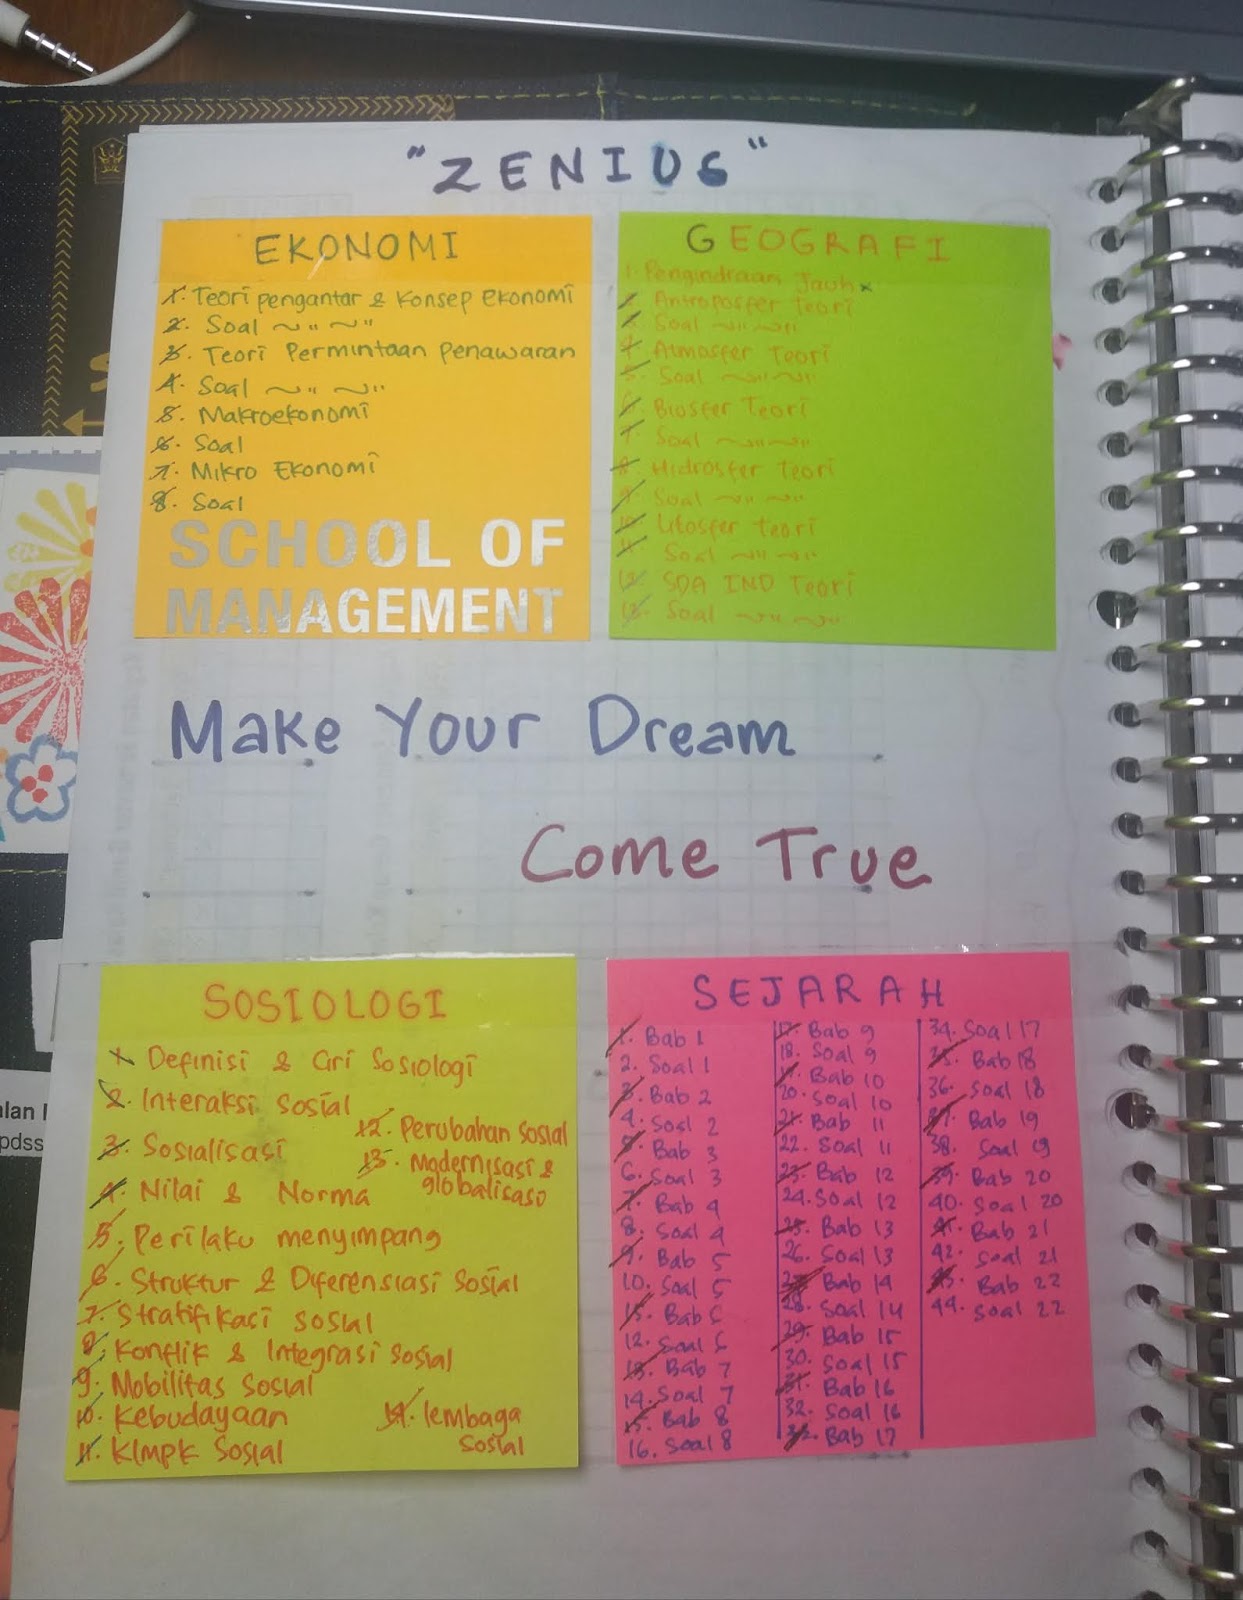 "ZENIUS"
EKONOMI
1. Teori pengantar & Konsep Ekonomi
2. Soal ~"~"
3. Teori Permintaan Penawaran
4. Soal ~"~"
5. Makroekonomi
6. Soal
7. Mikro Ekonomi
8. Soal
SCHOOL OF
MANAGEMENT
GEOGRAFI
1. Pengindraan Jauh x
2. Antroposfer Teori
3. Soal ~"~"
4. Atmosfer Teori
5. Soal ~"~"
6. Biosfer Teori
7. Soal ~"~"
8. Hidrosfer Teori
9. Soal ~"~"
10. Litosfer Teori
11. Soal ~"~"
12. SDA IND Teori
13. Soal ~"~"
Make Your Dream
Come True
SOSIOLOGI
1. Definisi & Ciri Sosiologi
2. Interaksi Sosial
3. Sosialisasi
4. Nilai & Norma
5. Perilaku menyimpang
6. Struktur & Diferensiasi Sosial
7. Stratifikasi Sosial
8. Konflik & Integrasi Sosial
9. Mobilitas Sosial
10. Kebudayaan
11. Klmpk Sosial
12. Perubahan Sosial
13. Modernisasi &
globalisasi
14. lembaga
sosial
SEJARAH
1. Bab 1
2. Soal 1
3. Bab 2
4. Soal 2
5. Bab 3
6. Soal 3
7. Bab 4
8. Soal 4
9. Bab 5
10. Soal 5
11. Bab 6
12. Soal 6
13. Bab 7
14. Soal 7
15. Bab 8
16. Soal 8
17. Bab 9
18. Soal 9
19. Bab 10
20. Soal 10
21. Bab 11
22. Soal 11
23. Bab 12
24. Soal 12
25. Bab 13
26. Soal 13
27. Bab 14
28. Soal 14
29. Bab 15
30. Soal 15
31. Bab 16
32. Soal 16
Bab 17
34. Soal 17
35. Bab 18
36. Soal 18
37. Bab 19
38. Soal 19
39. Bab 20
40. Soal 20
41. Bab 21
42. Soal 21
43. Bab 22
44. Soal 22